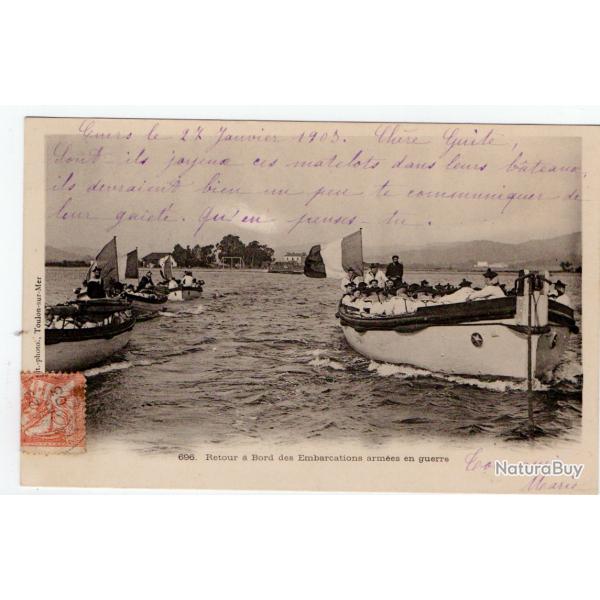 Cuers le 27 Janvier 1903. Chère Guite,
Sont ils joyeux ces matelots dans leurs bâteaux,
ils devraient bien un peu te communiquer de
leur gaieté. Qu'en penses-tu.
phot., Toulon-sur-Mer
696. Retour à Bord des Embarcations armées en guerre
NaturaBuy
Marie